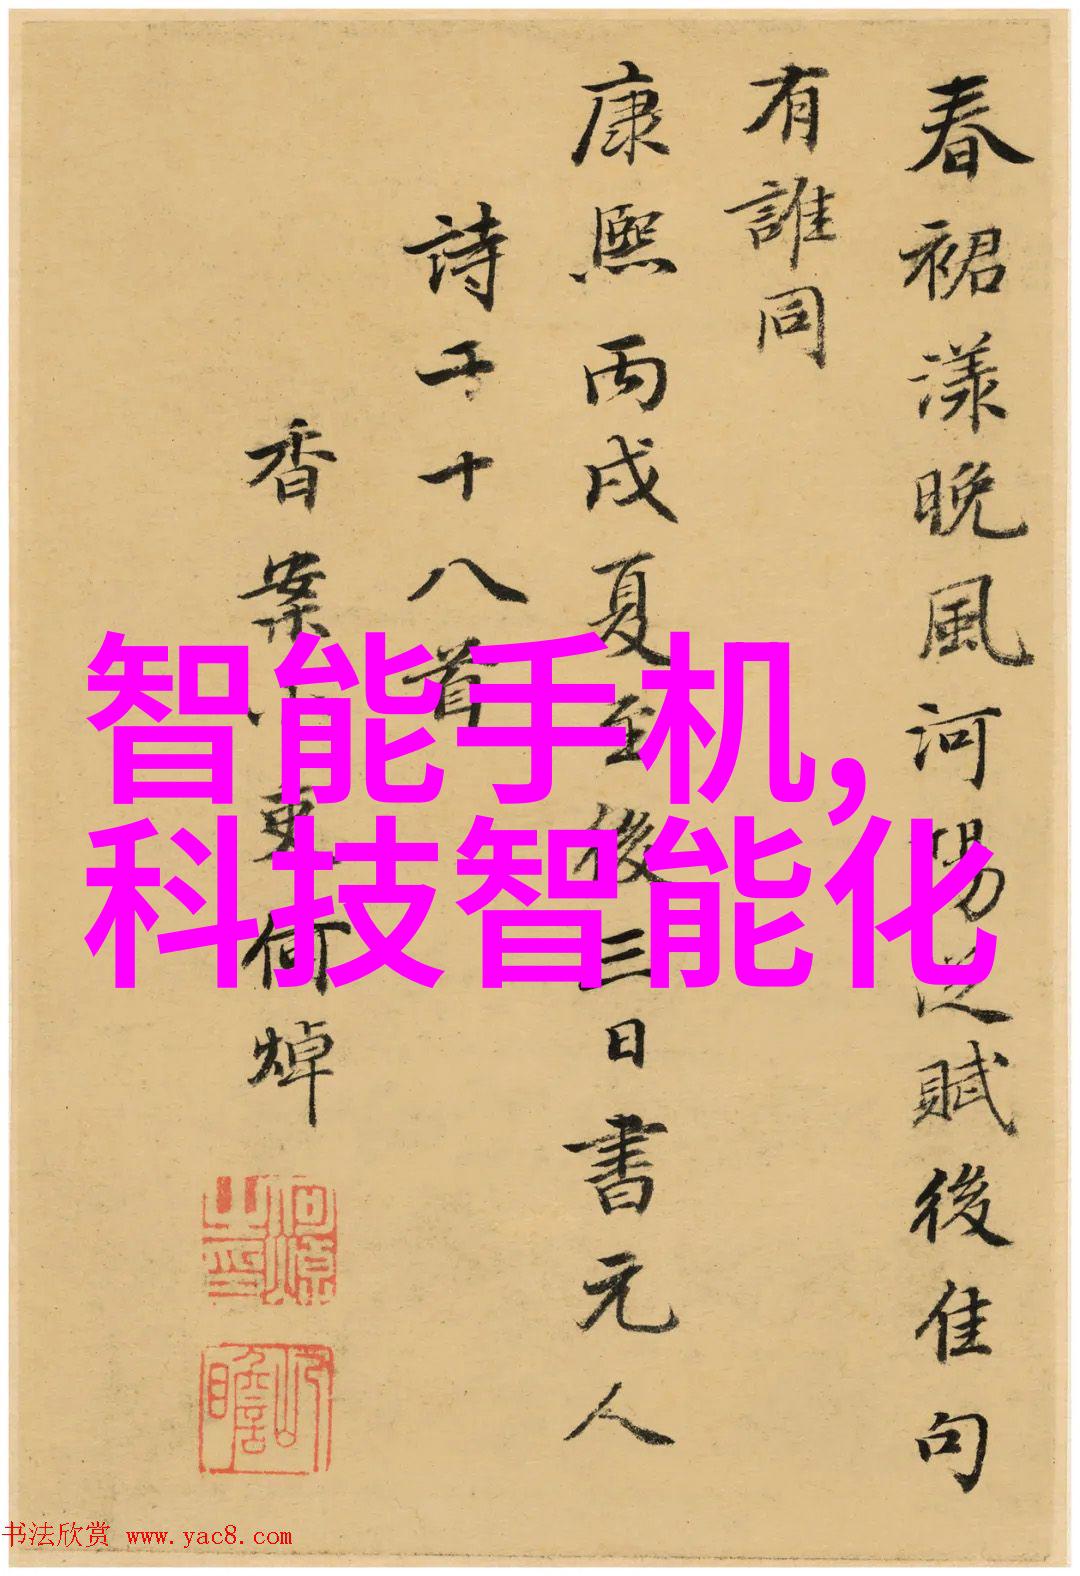 春裙漾晚風河陽從賦後佳句
有誰同
康熙丙戌夏至後三日書元人
詩十八首
香案小吏何焯
何焯之印
屺瞻
智能手机,
科技智能化
书法欣赏 www.yac8.com